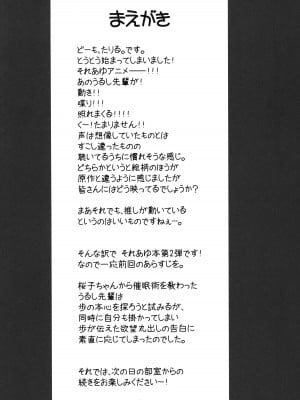 まえがき
どーも、たりる。です。
とうとう始まってしまいました!
それあゆアニメ――!!!
あのうるし先輩が!
動き!!
喋り!!!
照れまくる!!!!
くー!たまりません!!
声は想像していたものとは
すこし違ったものの
聴いてるうちに慣れそうな感じ。
どちらかというと絵柄のほうが
原作と違うように感じましたが
皆さんにはどう映ってるでしょうか?
まあそれでも、推しが動いている
というのはいいものですねぇー。
そんな訳で それあゆ本第2弾です!
なので一応前回のあらすじを。
桜子ちゃんから催眠術を教わった
うるし先輩は
歩の本心を探ろうと試みるが、
同時に自分も掛かってしまい
歩が伝えた欲望丸出しの告白に
素直に応じてしまったのでした。
それでは、次の日の部室からの
続きをお楽しみくださいー!